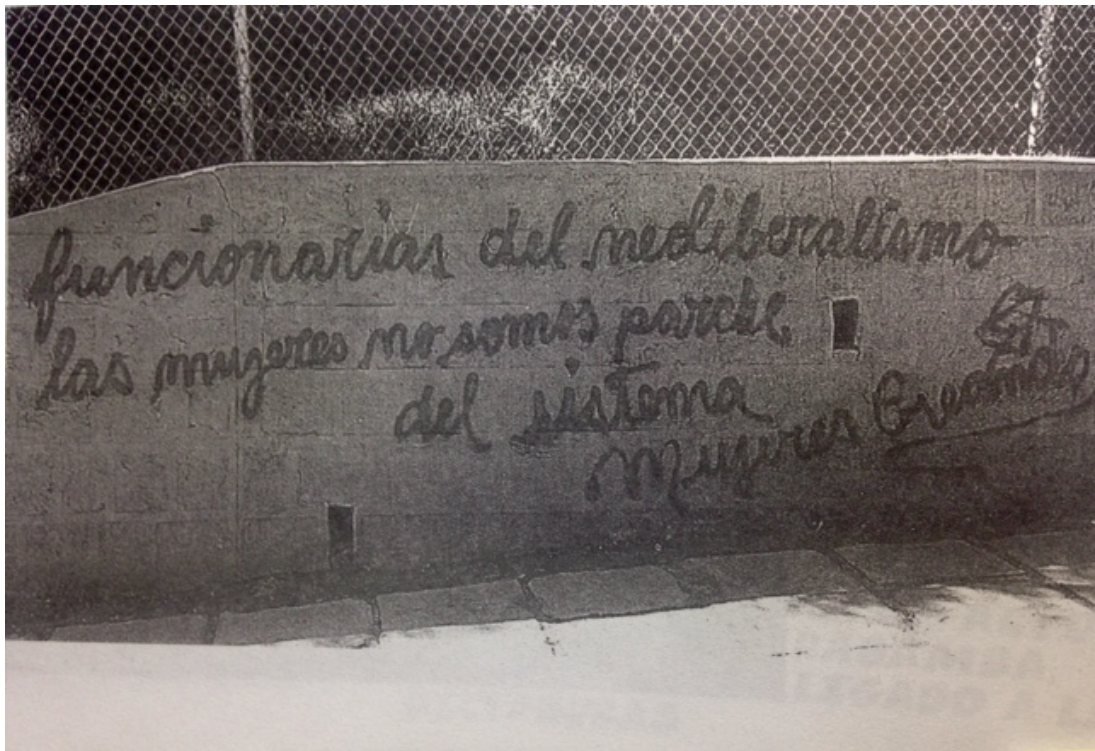 funcionarias del neoliberalismo
las mujeres no somos parche
del sistema
Mujeres Creando